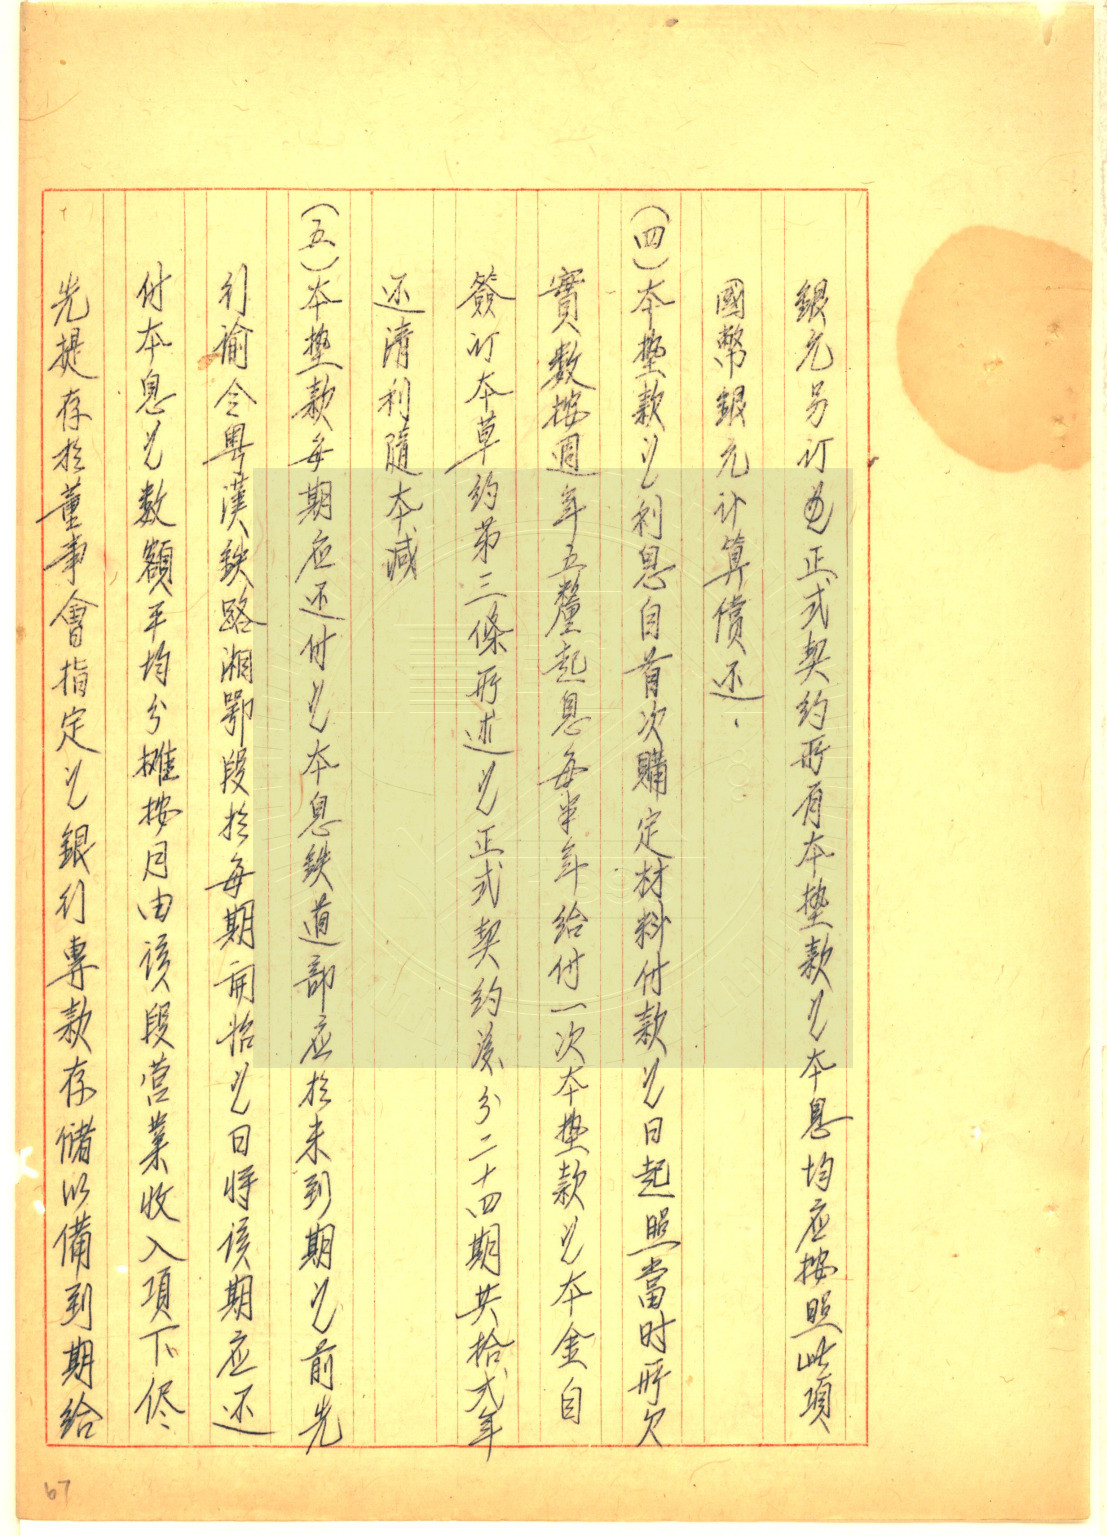 銀元另訂之正式契約所有本墊款之本息均应按照此項
國幣銀元計算償还、
(四)本墊款之利息自首次購定材料付款之日起照當时所欠
實數按週年五釐起息每半年給付一次本墊款之本金自
簽订本草約第三條所述之正式契約後分二十四期共拾弍年
还清利隨本減
(五)本墊款每期应还付之本息鉄道部应於未到期之前先
行諭令粤漢鉄路湘鄂段於每期開始之日將该期应还
付本息之數額平均分攤按月由该段营業收入項下侭
先提存於董事會指定之銀行專款存儲以備到期給
67